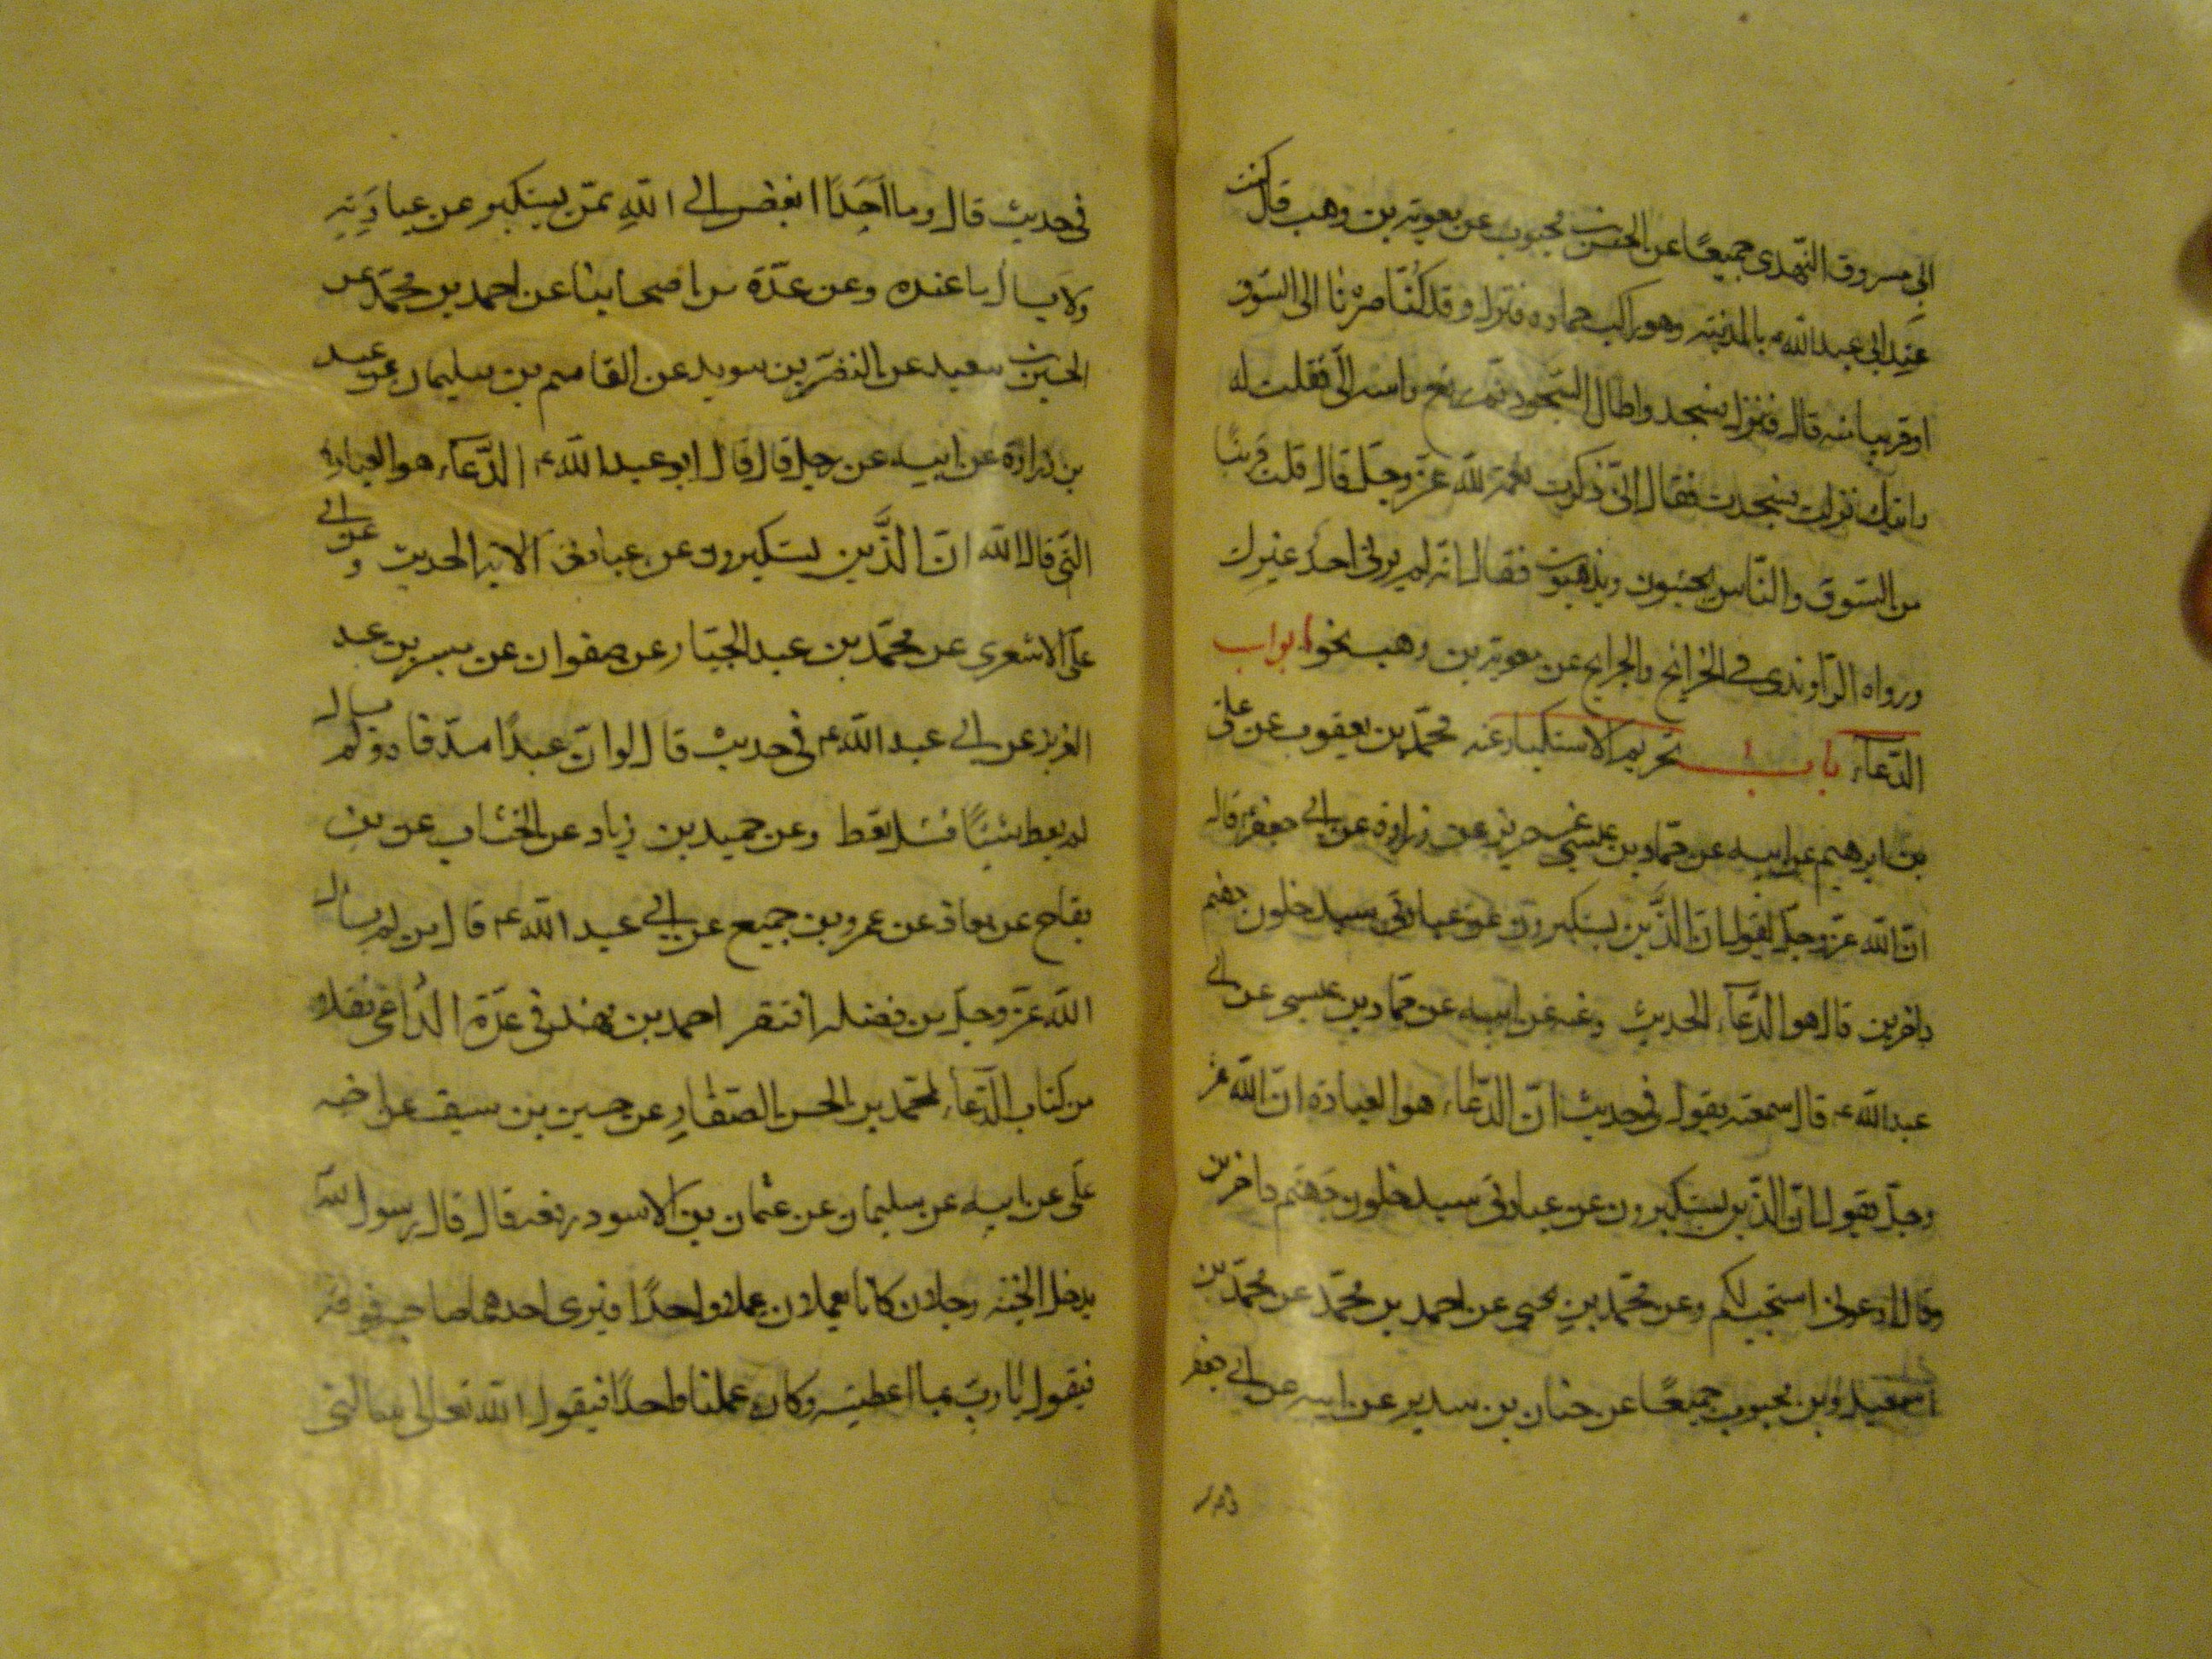 ابي مسروق النهدي جميعًا عن الحسن بن محبوب عن معوية بن وهب قال كنت
عند ابي عبد الله ع بالمدينه وهو راكب حماره فنزل وقد كنّا صرنا الى السّوق
او قريبا منه قال فنزل فسجد واطال السّجود ثم رفع راسه الىّ فقلت له
رايتك نزلت فسجدت فقال انّى ذكرت نعمة لله عزّ وجلّ قال قلت قريبًا
من السّوق والنّاس يجيئون ويذهبون فقال انّه لم يرنى احد غيرك
ورواه الرّاوندى فى الخرائج والجرايح عن معوية بن وهب نحوه ابواب
الدّعاء باب تحريم الاستكبار عنه محمّد بن يعقوب عن علىّ
بن ابرهيم عن ابيه عن حمّاد بن عيسى عن حريز عن زرارة عن ابى جعفر ع قال
انّ الله عزّ وجلّ يقول انّ الّذين يستكبرون عن عبادتى سيدخلون جهنم
داخرين قال هو الدّعاء الحديث وعنه عن ابيه عن حمّاد بن عيسى عن ابى
عبد الله ع قال سمعته يقول فى حديث انّ الدّعاء هو العبادة انّ الله عز
وجلّ يقول انّ الّذين يستكبرون عن عبادتى سيدخلون جهنّم داخرين
وقال ادعونى استجب لكم وعن محمّد بن يحيى عن احمد بن محمّد عن محمّد بن
اسمعيل وابن محبوب جميعًا عن حنان بن سدير عن ابيه عن ابى جعفر
فى حديث قال وما احَدًا ابغض الى اللهِ ممّن يستكبر عن عبادَتِهِ
ولا يسال ما عنده وعن عدّة من اصحابنا عن احمد بن محمّد عن
الحسين بن سعيد عن النضر بن سويد عن القاسم بن سليمان عن عبيد
بن زرارة عن ابيه عن رجل قال قال ابو عبد الله ع الدّعاء هو العبادة
الّتى قال الله انّ الّذين يستكبرون عن عبادتى الاية الحديث وعن ابى
علىّ الاشعرى عن محمّد بن عبد الجبّار عن صفوان عن ميسر بن عبد
العزيز عن ابى عبد الله ع فى حديث قال لو انّ عبدًا سدّ فاه ولم يسال
لم يعط شيئًا فسل تعط وعن حميد بن زياد عن الخشاب عن بن
بقاح عن معاذ عن عمرو بن جميع عن ابى عبد الله ع قال من لم يسال
الله عزّ وجلّ من فضله افتقر احمد بن فهد فى عدّة الدّاعى نقلا
من كتاب الدّعاء لمحمّد بن الحسن الصّفّار عن حسين بن سيف عن اخيه
علىّ عن ابيه عن سليمان عن عثمان بن الاسود رفعه قال قال رسول الله
يدخل الجنّه رجلان كانا يعملان عملا واحدًا فيرى احدهما صاحبه فوقه
فيقول يا ربّ بما اعطيته وكان عملنا واحدًا فيقول الله تعالى سالنى